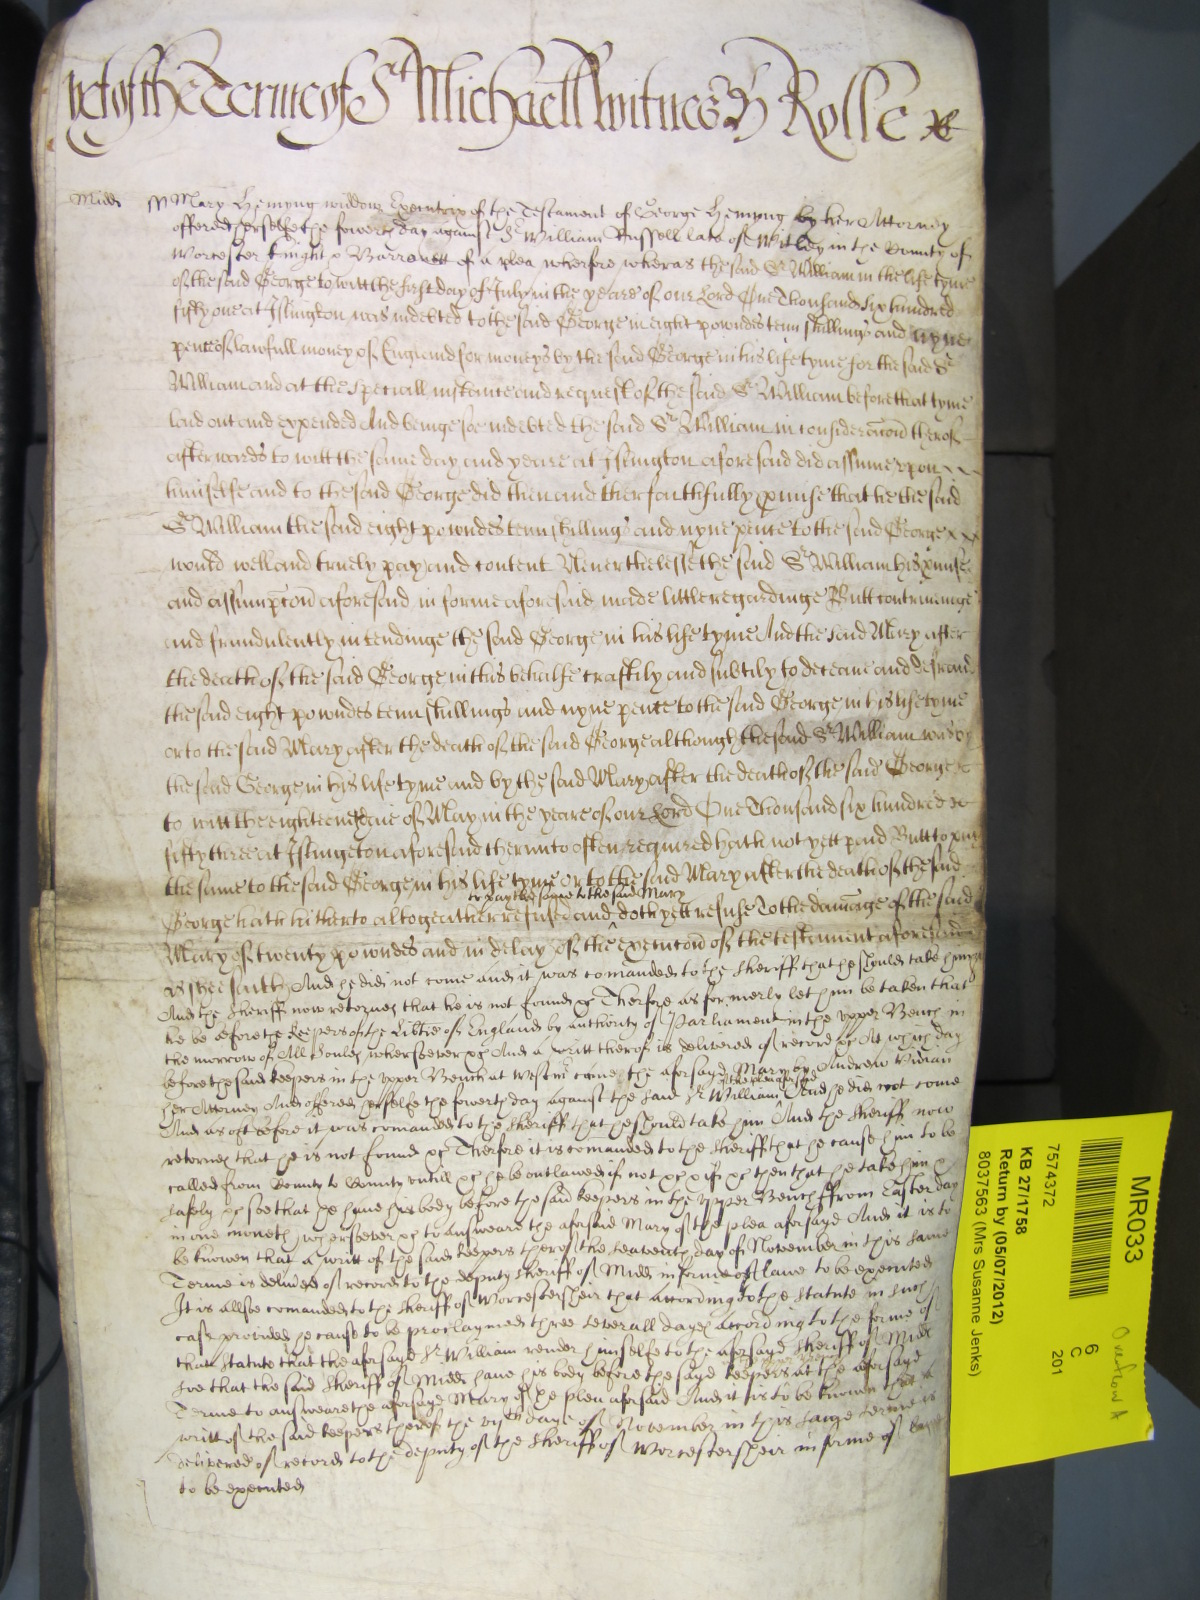 yet of the Terme of St Michaell witnes H Rolle
Midds Mary Hemyng widdow Executrix of the Testament of George Hemyng by her Attorney
offered herselfe the fowerth day against Sr William Russell late of Witley in the County of
Worcester Knight & Barronett of a plea wherfore wheras the said Sr William in the life tyme
of the said George to witt the first day of July in the yeare of our Lord One Thousand Six hundred
fifty one at Islington was indebted to the said George in eight powndes tenn shillings and nyne
pence of lawfull money of England for moneys by the said George in his life tyme for the said Sr
William and at the speciall instance and request of the said Sr William before that tyme
laid out and expended And beinge soe indebted the said Sr William in consideracon therof
afterwards to witt the same day and yeare at Islington aforesaid did assume upon
himselfe and to the said George did then and ther faithfully promise that he the said
Sr William the said eight powndes tenn shillings and nyne pence to the said George
would well and truely pay and content Neverthelesse the said Sr William his promise
and assumpcon aforesaid in forme aforesaid made little regardinge Butt contriveinge
and fraudulently intendinge the said George in his life tyme And the said Mary after
the death of the said George in this behalfe craftily and subtily to deceave and defraud
the said eight powndes tenn shillings and nyne pence to the said George in his life tyme
or to the said Mary after the death of the said George although the said Sr William was by
the said George in his life tyme and by the said Mary after the death of the said George
to witt the eighteenth daie of May in the yeare of our Lord One Thousand six hundred
fifty three at Islington aforesaid therunto often required hath not yett paid Butt to pay
the same to the said George in his life tyme or to the said Mary after the death of the said
to pay the same to the said Mary
George hath hitherto altogeather refused and doth yett refuse To the damage of the said
Mary of twenty powndes and in delay of the execucon of the testament aforesaid
as shee saith And he did not come and it was comanded to the Sheriff that he should take him
And the Sheriff now retornes that he is not found &c Therfore as formerly let him be taken that
he be before the Keepers of the Libtie of England by authority of Parliament in the upper Bench in
the morrow of All Soules whersoever &c And a writt therof is delivered of record &c At which day
before the said keepers in the upper Bench at Westmr came the aforsayd Mary by Andrew Vivian
her Attorney And offered herselfe the fowerth day against the said Sr William of the plea aforsd And he did not come
And as oft before it was comanded to the Sheriff that he should take him And the Sheriff now
retornes that he is not found &c Therfore it is comanded to the Sheriff that he cause him to be
called from County to County untill &c he be outlawed if not &c if &c then that he take him &c
safely &c soe that he have his body before the said keepers in the upper Bench from Easter day
in one moneth whersoever &c to answeare the aforsaid Mary of the plea aforsayd And it is to
be knowen that a writt of the said keepers therof the seaventh day of November in this same
Terme is delivered of record to the deputy Sheriff of Midds in forme of lawe to be executed
It is allsoe comanded to the Sheriff of Worcestersheir that according to the Statute in such
case provided he cause to be proclaymed three severall dayes according to the forme of
that Statute that the aforsayd Sr William render himselfe to the aforsayd Sheriff of Midds
soe that the said Sheriff of Midds have his body before the sayd keepers at the aforsayd
Terme to answeare the aforsayd Mary of the plea aforsaid And it is to be knowen that a
writt of the said keepers therof the daye of November in this same Terme is
delivered of record to the deputy of the Sheriff of Worcestersheir in forme of law
to be executed
MR033
7574372
KB 27/1758
Return by (05/07/2012)
8037563 (Mrs Susanne Jenks)
6
C
201